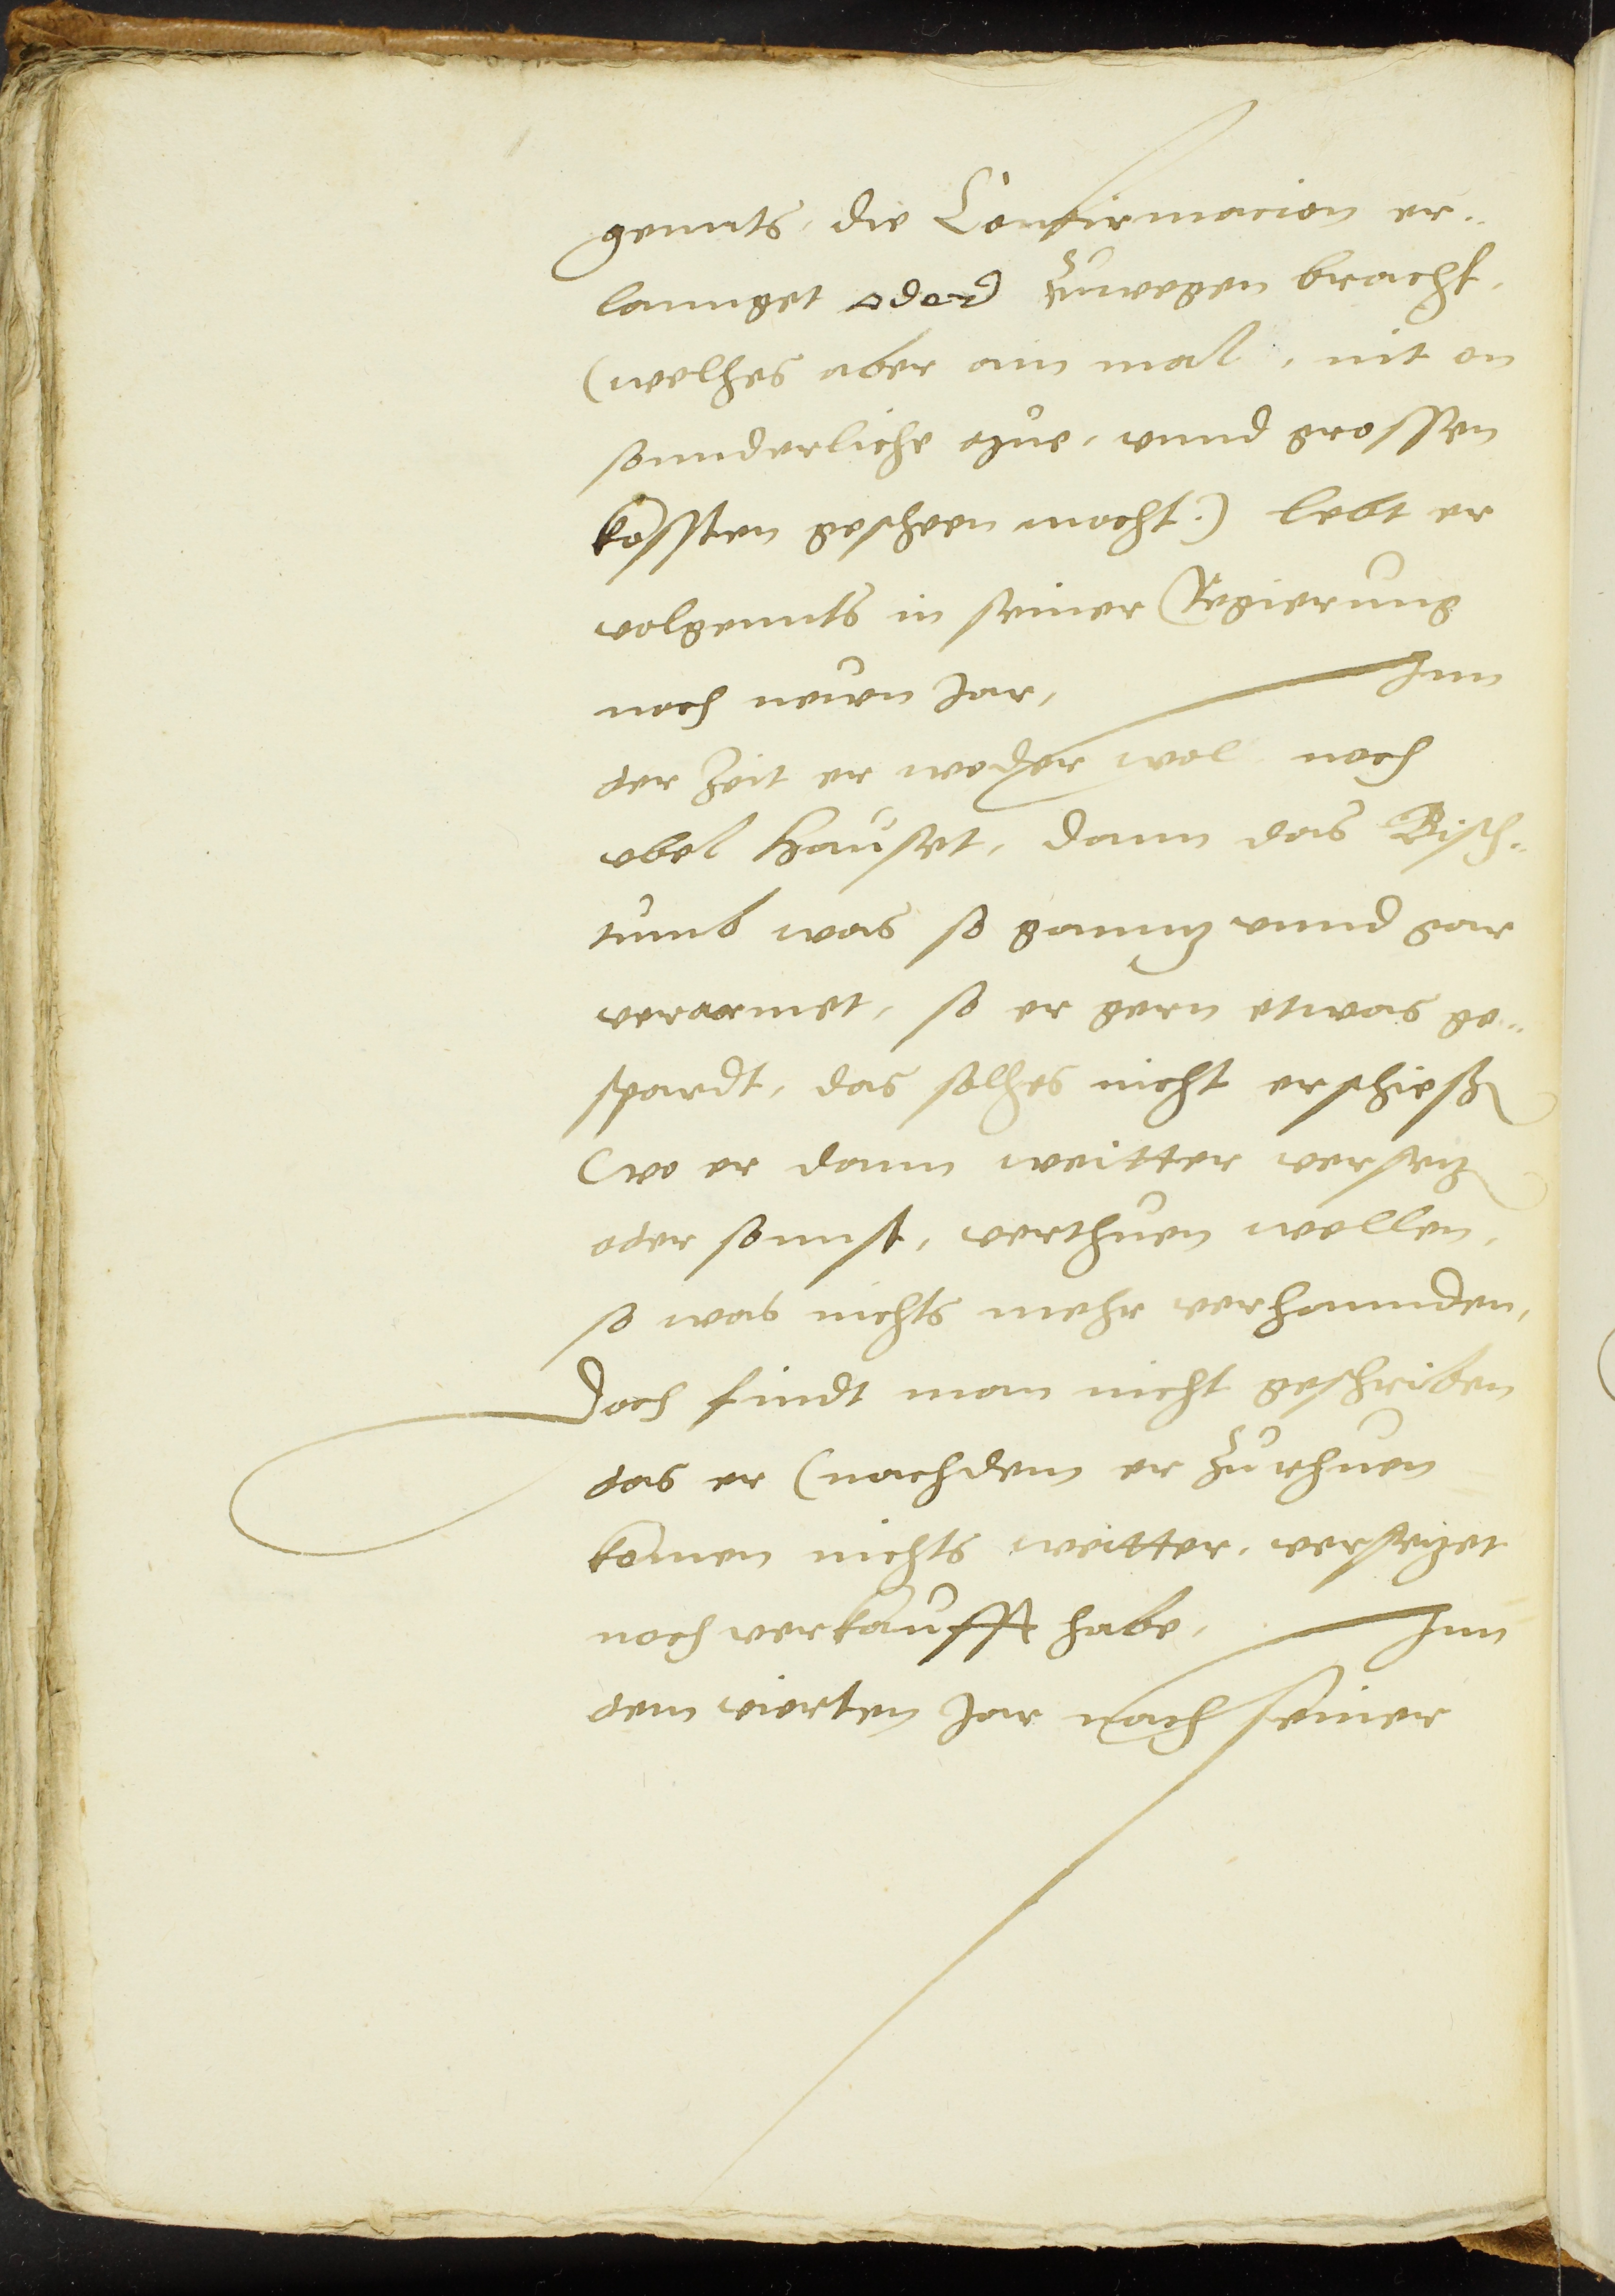 gennts, die Confirmacion er¬
lannget oder zuwegen bracht,
(welches aber ein mal, nit on
sonnderliche rhue, vnnd grossen
kossten geschehen mocht.) lebt er
volgennts in seiner Regierung
noch neuen Jar, Inn
der Zeit er weder wol noch
vbel hauset, dann das Bisch¬
tumb was so ganntz vnnd gar
verarmet, so er gern etwas ge¬
spardt, das solches nicht erschiesz
Wo er dann weitter versetz
oder sonnst, verthuen wollen,
so was nichts mehr verhannden,
Doch findt man nicht geschriben
das er (nachdem er zu rhuen
komen nichts weitter, versetzet
noch verkaufft habe, Inn
dem vierten Jar nach seiner